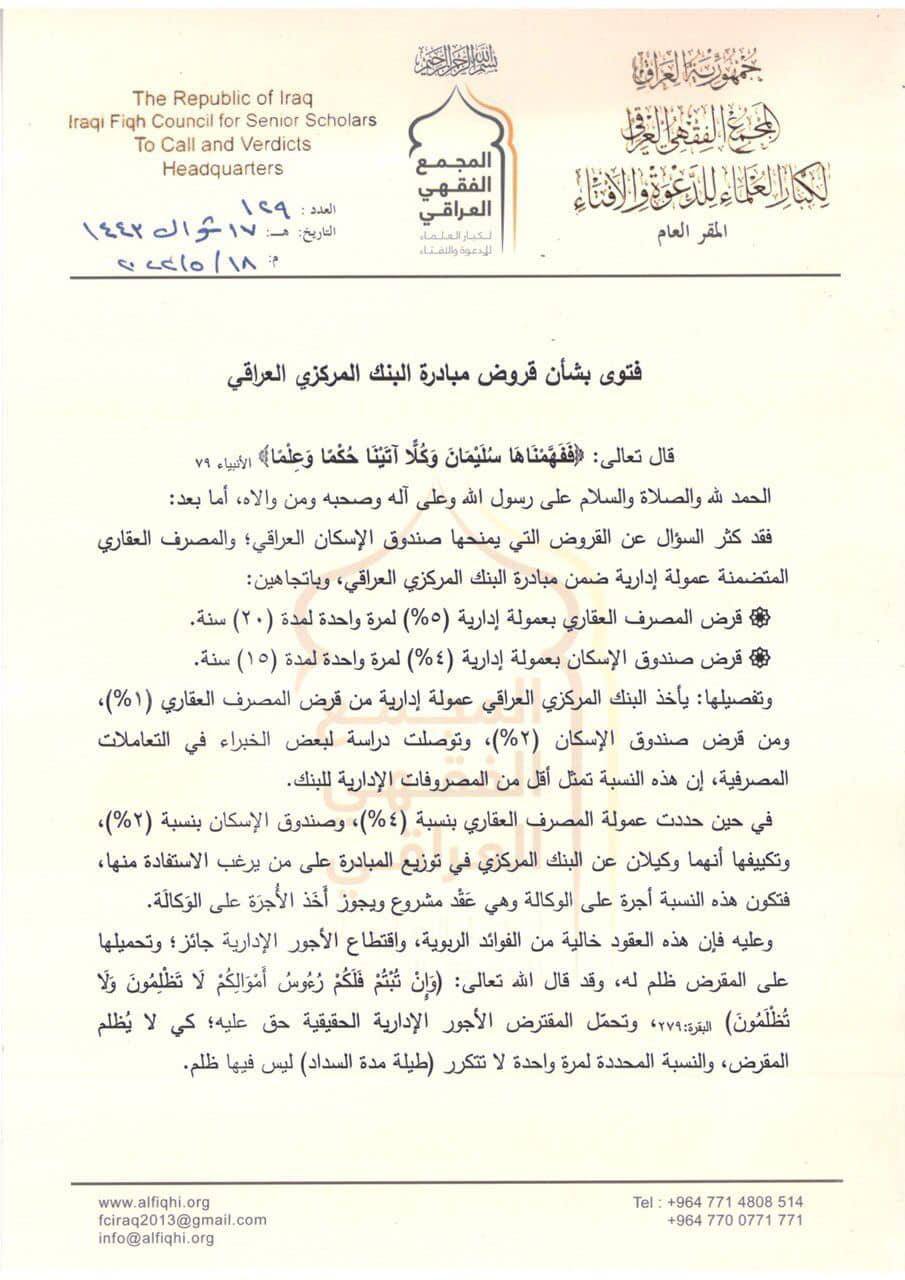 بسم الله الرحمن الرحيم
جمهورية العراق
المجمع الفقهي العراقي
لكبار العلماء للدعوة والافتاء
المقر العام
المجمع
الفقهي
العراقي
لكبار العلماء
للدعوة والافتاء
The Republic of Iraq
Iraqi Fiqh Council for Senior Scholars
To Call and Verdicts
Headquarters
العدد : ١٢٩
التاريخ: هـ: ١٧ شوال ١٤٤٣
م: ٢٠٢٢/٥/١٨
فتوى بشأن قروض مبادرة البنك المركزي العراقي
قال تعالى: ﴿فَفَهَّمْنَاهَا سُلَيْمَانَ وَكُلًّا آتَيْنَا حُكْمًا وَعِلْمًا﴾ الأنبياء ٧٩
الحمد لله والصلاة والسلام على رسول الله وعلى آله وصحبه ومن والاه، أما بعد:
فقد كثر السؤال عن القروض التي يمنحها صندوق الإسكان العراقي؛ والمصرف العقاري
المتضمنة عمولة إدارية ضمن مبادرة البنك المركزي العراقي، وباتجاهين:
۞ قرض المصرف العقاري بعمولة إدارية (٥%) لمرة واحدة لمدة (٢٠) سنة.
۞ قرض صندوق الإسكان بعمولة إدارية (٤%) لمرة واحدة لمدة (١٥) سنة.
وتفصيلها: يأخذ البنك المركزي العراقي عمولة إدارية من قرض المصرف العقاري (١%)،
ومن قرض صندوق الإسكان (٢%)، وتوصلت دراسة لبعض الخبراء في التعاملات
المصرفية، إن هذه النسبة تمثل أقل من المصروفات الإدارية للبنك.
في حين حددت عمولة المصرف العقاري بنسبة (٤%)، وصندوق الإسكان بنسبة (٢%)،
وتكييفها أنهما وكيلان عن البنك المركزي في توزيع المبادرة على من يرغب الاستفادة منها،
فتكون هذه النسبة أجرة على الوكالة وهي عَقْد مشروع ويجوز أَخذ الأُجرَة على الوَكالَة.
وعليه فإن هذه العقود خالية من الفوائد الربوية، واقتطاع الأجور الإدارية جائز؛ وتحميلها
على المقرض ظلم له، وقد قال الله تعالى: (وَإِنْ تُبْتُمْ فَلَكُمْ رُءُوسُ أَمْوَالِكُمْ لَا تَظْلِمُونَ وَلَا
تُظْلَمُونَ) البقرة:٢٧٩، وتحمّل المقترض الأجور الإدارية الحقيقية حق عليه؛ كي لا يُظلم
المقرض، والنسبة المحددة لمرة واحدة لا تتكرر (طيلة مدة السداد) ليس فيها ظلم.
www.alfiqhi.org
fciraq2013@gmail.com
info@alfiqhi.org
Tel : +964 771 4808 514
+964 770 0771 771